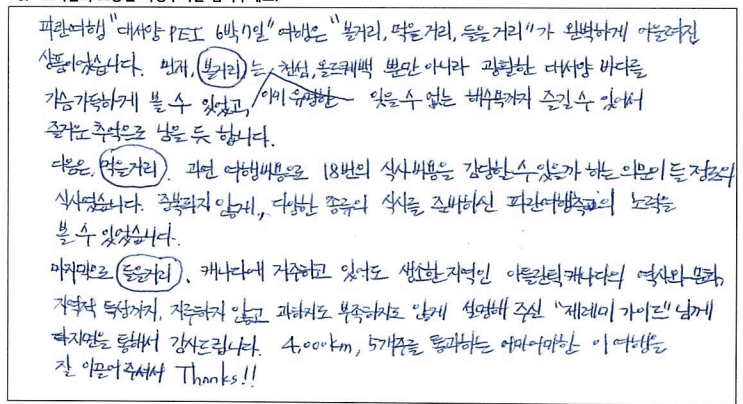 파란여행 "대서양 PEI 6박7일" 여행은 "볼거리, 먹을거리, 들을거리"가 완벽하게 어울려진
상품이었습니다. 먼저, 볼거리는, 천섬, 올드퀘백 뿐만 아니라 광활한 대서양 바다를
가슴가득하게 볼 수 있었고, 잊을 수 없는 해수욕까지 즐길 수 있어서
즐거운 추억으로 남을 듯 합니다.
다음은, 먹을거리. 과연 여행비용으로 18번의 식사비용을 감당할 수 있을까 하는 의문이 들 정도의
식사였습니다. 중복되지 않게, 다양한 종류의 식사를 준비하신 파란여행측의 노력을
볼 수 있었습니다.
마지막으로 들을거리. 캐나다에 거주하고 있어도 생소한 지역인 아틀란틱 캐나다의 역사와 문화,
지역적 특성까지, 지루하지 않고 과하지도 부족하지도 않게 설명해 주신 "제레미 가이드"님께
지면을 통해서 감사드립니다. 4,000km, 5개주를 통과하는 어마어마한 이 여행을
잘 이끌어주셔서 Thanks!!